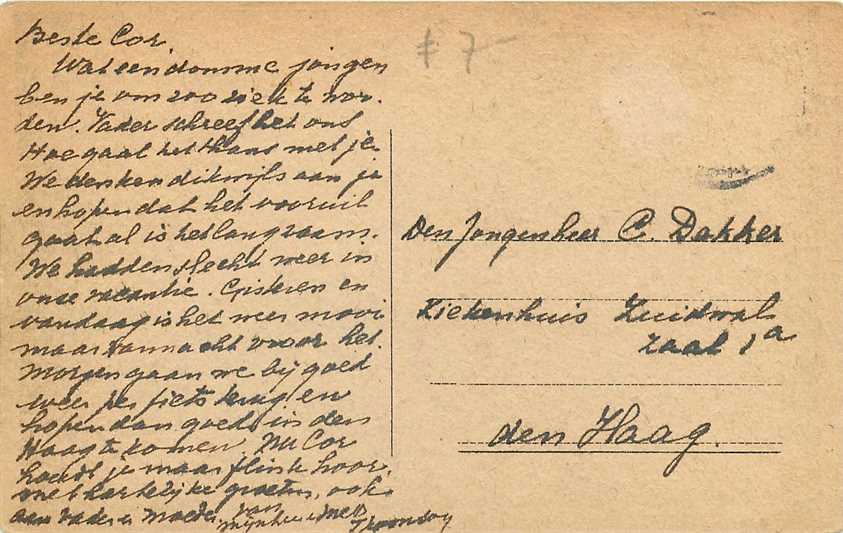 Beste Cor
Wat een domme jongen
ben je om zoo ziek te wor-
den. Vader schreef het ons
Hoe gaat het thans met je.
We denken dikwijls aan je
en hopen dat het vooruit
gaat al is het langzaam.
We hadden slecht weer in
onze vacantie. Gisteren en
vandaag is het weer mooi
maar vannacht vroor het.
Morgen gaan we bij goed
weer per fiets terug en
hopen dan goed in den
Haag te komen. Nu Cor
houdt je maar flink hoor,
met hartelijke groeten, ook
aan vader en moeder, van
mijnheer en mevr.
ƒ 7-
Den Jongenheer C. Dakker
Ziekenhuis Zuidwal
zaal 1a
den Haag.